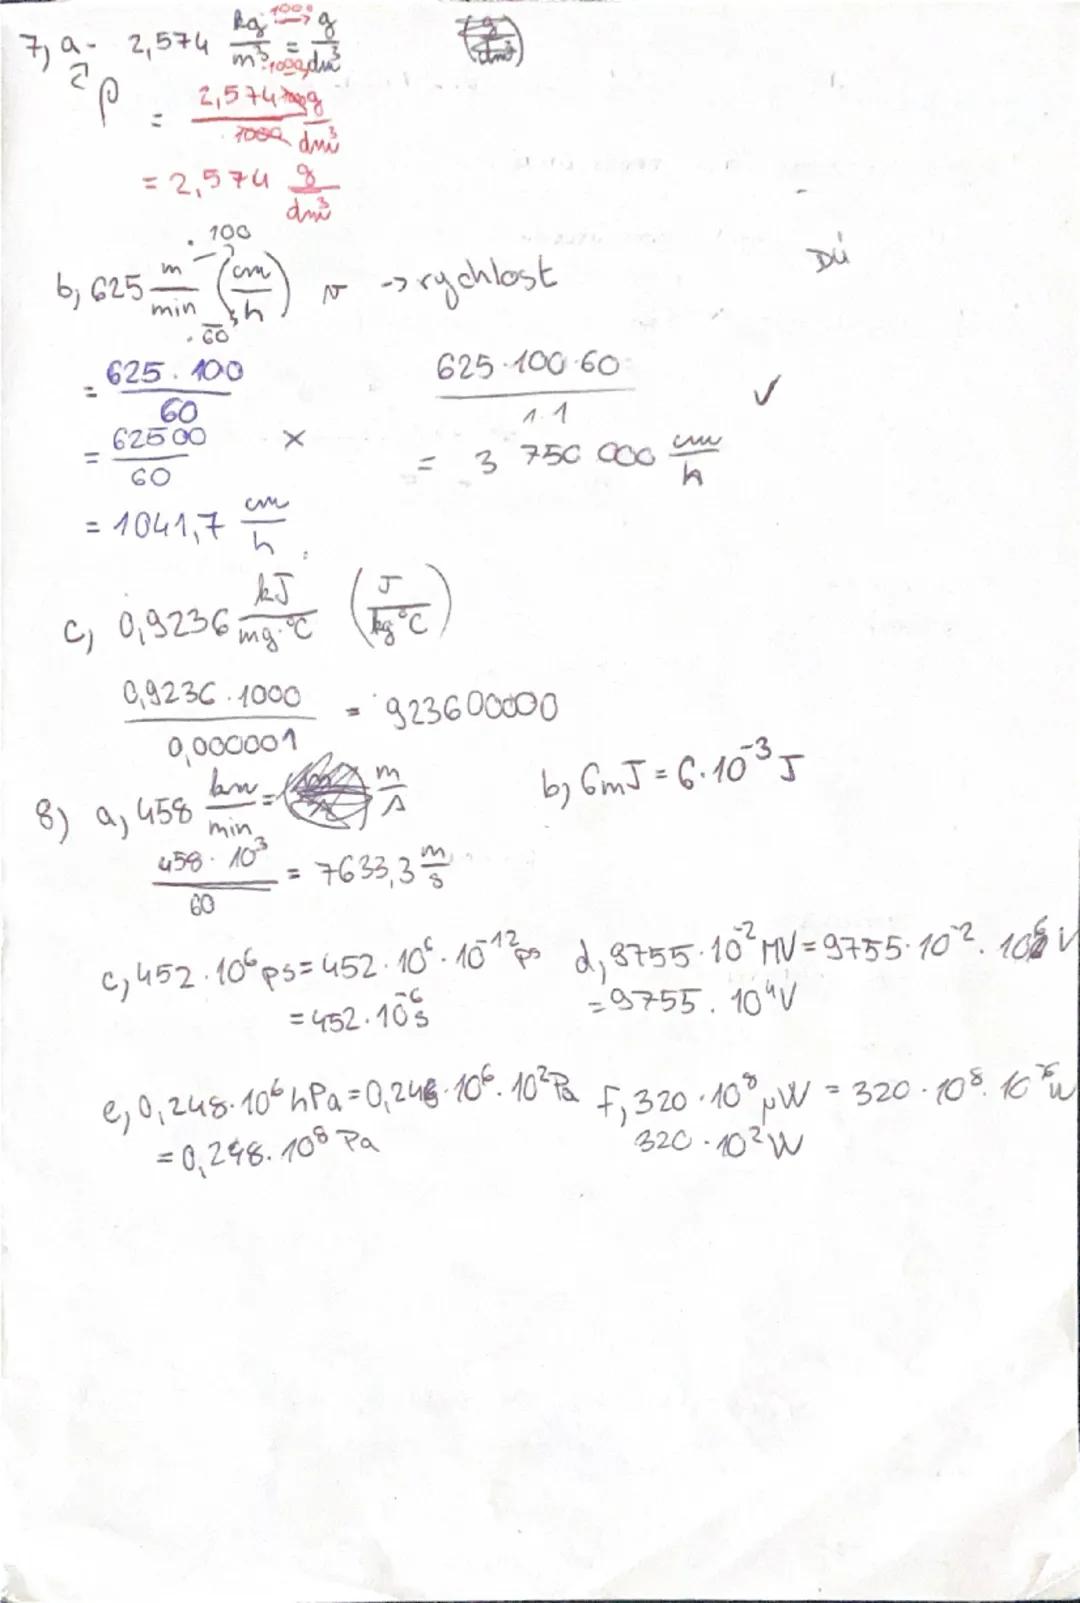 7, a - 2,574 kg/m³ = g/dm³
·1000 → ·1000
ρ = 2,574·1000 g / 1000 dm³
= 2,574 g/dm³
· 100
b, 625 m/min (cm/h) v -> rychlost DÚ
· 60
= 625 . 100 / 60 625·100·60 / 1·1 ✓
= 62500 / 60 × = 3 750 000 cm/h
= 1041,7 cm/h
c, 0,9236 kJ/mg·°C (J/kg°C)
0,9236·1000 / 0,000001 = 923600000
8) a, 458 km/min = m/s b, 6mJ = 6·10⁻³ J
458·10³ / 60 = 7633,3 m/s
c, 452·10⁶ ps = 452·10⁶·10⁻¹² ps d, 9755·10⁻² MV = 9755·10⁻²·10⁶ V
= 452·10⁻⁶ s = 9755·10⁴ V
e, 0,248·10⁶ hPa = 0,248·10⁶·10² Pa f, 320·10⁸ μW = 320·10⁸·10⁻⁶ W
= 0,248·10⁸ Pa 320·10² W